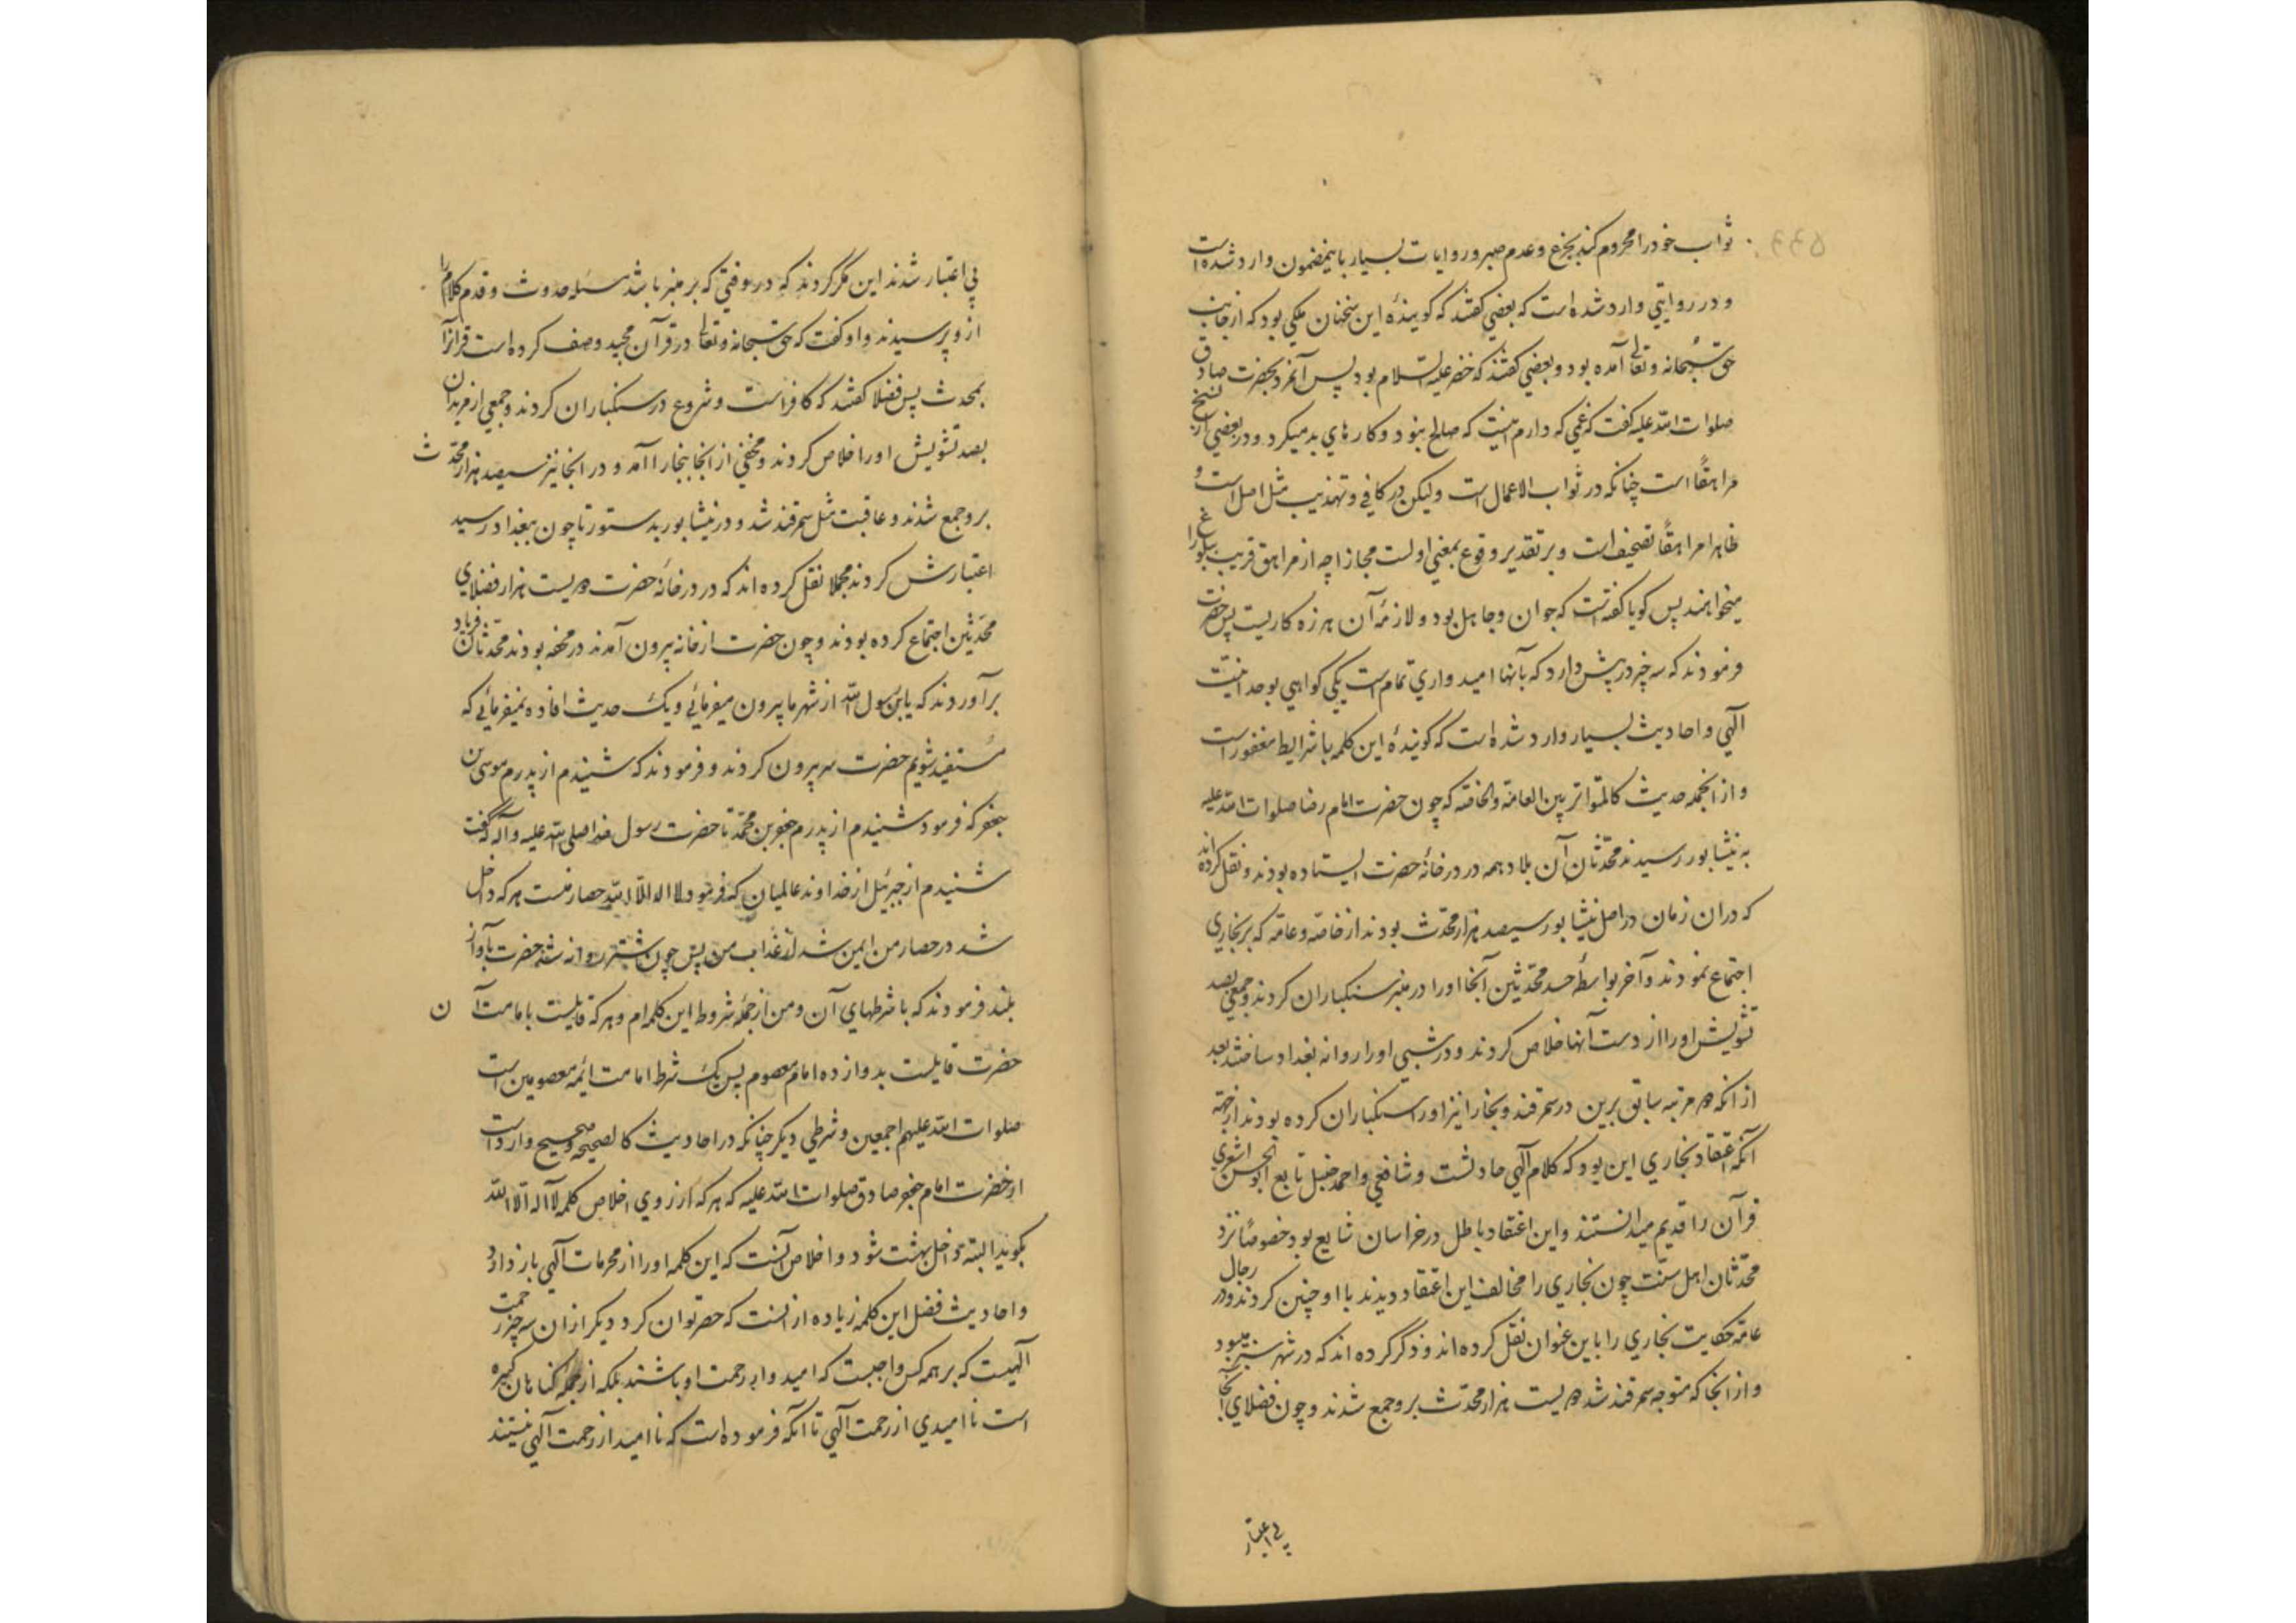 ثواب خود را محروم کند بجزع و عدم صبر و روایات بسیار باینمضمون وارد شده است
و در روایتي وارد شده است که بعضي کفتند که کویندهٔ این سخنان ملکي بود که از جانب
حق سبحانه و تعالی آمده بود و بعضي کفتند که خضر علیه السلام بود پس آنمرد بحضرت صادق
صلوات الله علیه کفت که غمي که دارم اینست که صالح نبود و کارهاي بد میکرد و در بعضي از نسخ
مراهقًا است چنانکه در ثواب الاعمال است ولیکن در کافي و تهذیب مثل اصل است و
ظاهرا مراهقًا تصحیف است و بر تقدیر وقوع بمعني اولست مجازا چه از مراهق قریب ببلوغ را
میخواهند پس کویا کفتست که جوان و جاهل بود و لازمهٔ آن هرزه کاریست پس حضرت
فرمودند که سه چیز در پیش دارد که بآنها امیدواري تمام است یکي کواهي بوحدانیت
آلهي و احادیث بسیار وارد شده است که کویندهٔ این کلمه با شرایط مغفور است
و از انجمله حدیث کالمتواتر بین العامة والخاصه که چون حضرت امام رضا صلوات الله علیه
به نیشابور رسیدند محدّثان آن بلاد همه در در خانهٔ حضرت ایستاده بودند و نقل کرده اند
که دران زمان در اصل نیشابور سیصد هزار محدّث بودند از خاصّه و عامّه که بر بخاري
اجتماع نمودند و آخر بواسطهٔ حسد محدّثین آنجا او را در منبر سنکباران کردند و جمعي بصد
تشویش او را از دست آنها خلاص کردند و در شبي او را روانه بغداد ساختند بعد
از انکه دو مرتبه سابق برین در سمرقند و بخارا نیز او را سنکباران کرده بودند از جهة
آنکه اعتقاد بخاري این بود که کلام آلهي حادثست و شافعي و احمد حنبل تابع ابوالحسن اشعري
قرآن را قدیم میدانستند و این اعتقاد باطل در خراسان شایع بود خصوصًا نزد
محدّثان اهل سنّت چون بخاري را مخالف این اعتقاد دیدند با او چنین کردند و در رجال
عامّه حکایت بخاري را باین عنوان نقل کرده اند و ذکر کرده اند که در شهر سبز میبود
و از انجا که متوجه سمرقند شد دویست هزار محدّث برو جمع شدند و چون فضلاي آنجا
بي اعتبار
بي اعتبار شدند این مکر کردند که در وقتي که بر منبر باشد مسئله حدوث و قدم کلام را
ازو پرسیدند و او کفت که حق سبحانه و تعالی در قرآن مجید وصف کرده است قرآنرا
بمحدث پس فضلا کفتند که کافراست و شروع در سنکباران کردند و جمعي از مریدان
بصد تشویش او را خلاص کردند و مخفي از انجا ببخارا آمد و در انجا نیز سیصد هزار محدّث
برو جمع شدند و عاقبت مثل سمرقند شد و در نیشابور بدستور تا چون ببغداد رسید
اعتبارش کردند مجملا نقل کرده اند که در در خانهٔ حضرت دویست هزار فضلاي
محدّثین اجتماع کرده بودند و چون حضرت از خانه بیرون آمدند در محفه بودند محدّثان فریاد
برآوردند که یابن رسول الله از شهر ما بیرون میفرمائي و یک حدیث افاده نمیفرمائي که
مستفید شویم حضرت سر بیرون کردند و فرمودند که شنیدم از پدرم موسی بن
جعفر که فرمود شنیدم از پدرم جعفر بن محمّد تا حضرت رسول خدا صلی الله علیه و آله که کفت
شنیدم از جبرئیل از خداوند عالمیان که فرمود لا اله الا الله حصار منست هر که داخل
شد در حصار من ایمن شد از عذاب من پس چون شتر روانه شد حضرت بآواز
بلند فرمودند که با شرطهاي آن و من از جمله شروط این کلمه ام و هر که قایلست بامامت آن
حضرت قایلست بدوازده امام معصوم پس یک شرط امامت ائمه معصومین است
صلوات الله علیهم اجمعین و شرطي دیکر چنانکه در احادیث کالصحیحه و صحیح وارد است
از حضرت امام جعفر صادق صلوات الله علیه که هر که از روي اخلاص کلمه لا اله الا الله
بکوید البته داخل بهشت شود و اخلاص آنست که این کلمه او را از محرمات آلهي باز دارد
و احادیث فضل این کلمه زیاده از آنست که حصر توان کرد دیکر از ان سه چیز رحمت
آلهیست که بر همه کس واجبست که امیدوار رحمت او باشند بلکه از جمله کناهان کبیره
است ناامیدي از رحمت آلهي تا آنکه فرموده است که ناامید از رحمت آلهي نیستند